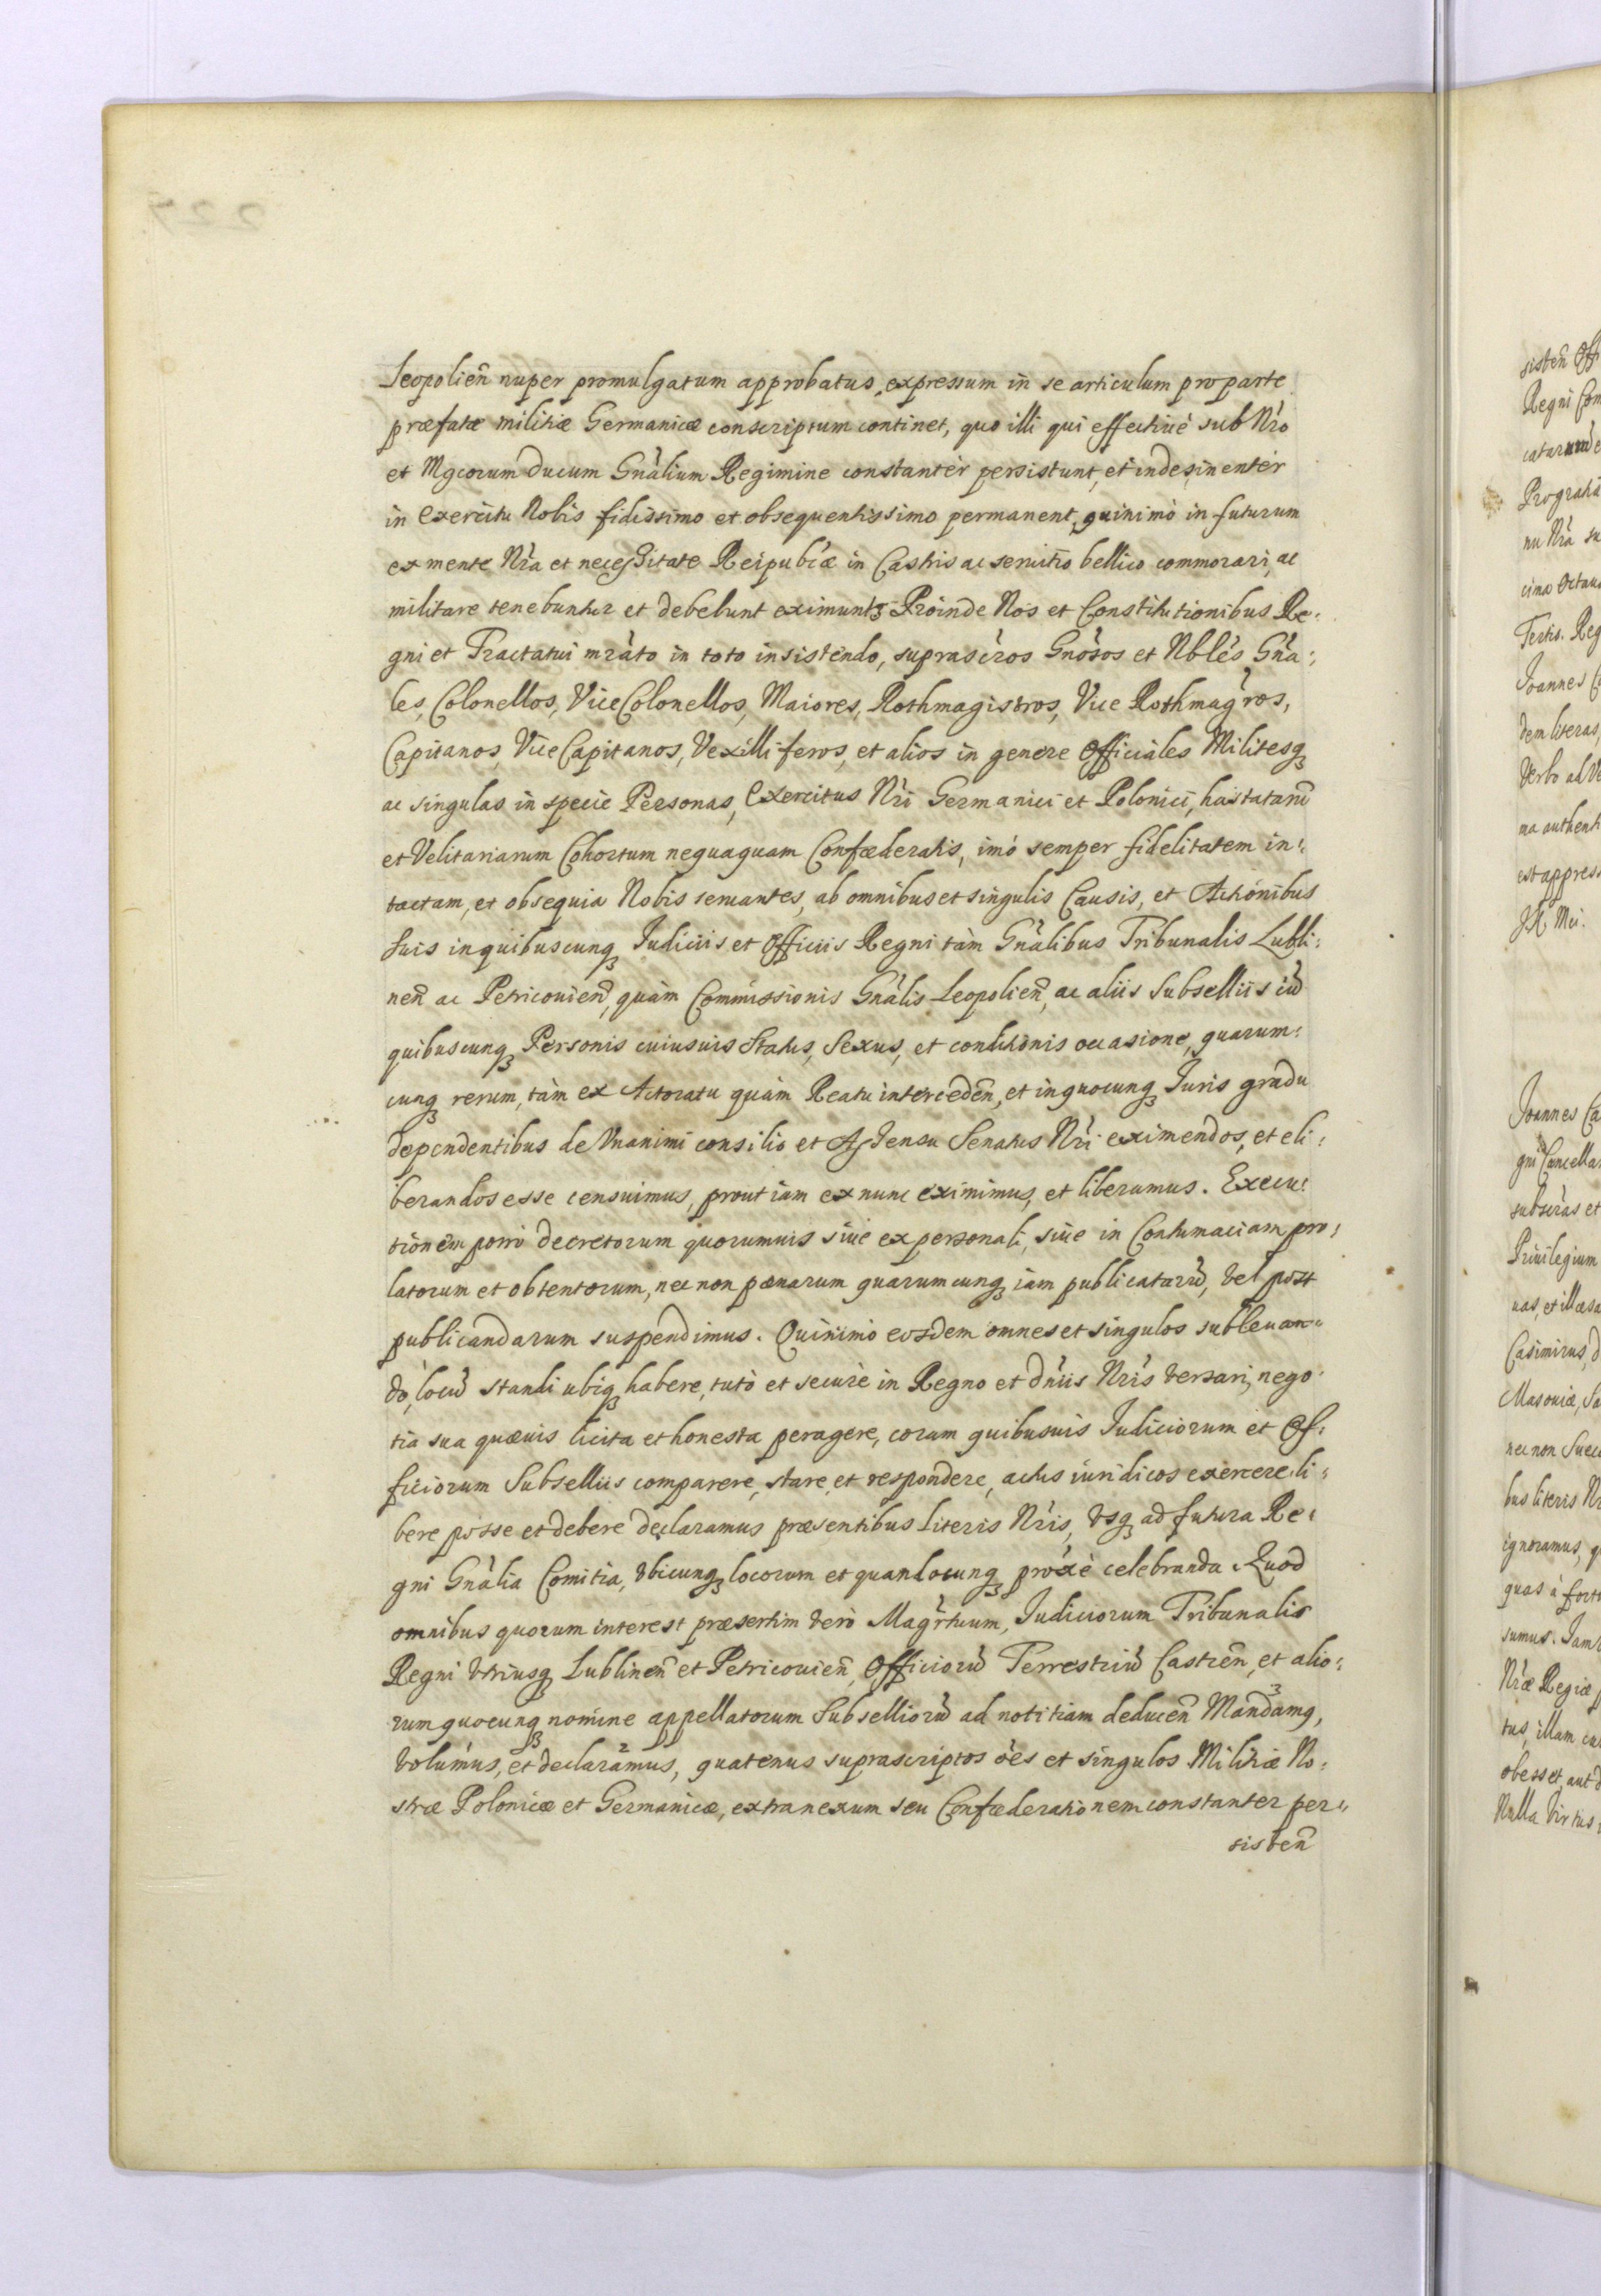 Leopolien̄ nuper promulgatum approbatus, expressum in se articulum pro parte
præfatæ militiæ Germanicæ conscriptum continet, quo illi qui effectiuè sub Nr̃o
et Mgcorum Ducum Gnãlium Regimine constantèr persistunt, et indesinentèr
in Exercitu Nobis fidissimo et obsequentissimo permanent, quinimò in futurum
ex mente Nr̃a et necessitate Reipublcæ in Castris ac seruitio bellico commorari, ac
militare tenebuntur et debebunt eximuntꝫ Proinde Nos et Constitutionibus Re:
gni et Tractatui mr̃ato in toto insistendo, suprascr̃os Gnõsos et Nblẽs Gnã:
les, Colonellos, Vice Colonellos, Maiores, Rothmagistros, Vice Rothmagr̃os,
Capitanos, Vice Capitanos, Vexilliferos, et alios in genere Officiales Militesqꝫ
ac singulas in specie Personas, Exercitus Nr̃i Germanici et Polonici, hastatarũ
et Velitariarum Cohortum nequaquam Confæderatis, imò semper fidelitatem in:
tactam, et obsequia Nobis seruantes, ab omnibus et singulis Causis, et Actiónibus
suis in quibuscunqꝫ Iudiciis et Officiis Regni tàm Gnãlibus Tribunalis Lubli:
nen̄ ac Petricouien̄, quàm Commissionis Gnãlis Leopolien̄, ac aliis Subselliis cũ
quibuscunqꝫ Personis cuiusuis Status, Sexus, et conditionis occasione, quarum:
cunqꝫ rerum, tàm ex Actoratu quàm Reatu interceden̄, et in quocunqꝫ Iuris gradu
dependentibus de Vnanimi consilio et Assensu Senatus Nr̃i eximendos, et eli:
berandos esse censuimus, prout iam ex nunc eximimus, et liberamus. Execu:
tionem porrò decretorum quorumuis siue ex personali, siue in Contumaciam pro:
latorum et obtentorum, nec non pænarum quarumcunqꝫ iam publicatarũ, vel post
publicandarum suspendimus. Quinimò eosdem omnes et singulos subleuan:
do, locũ standi ubiqꝫ habere, tutò et securè in Regno et dñiis Nr̃is versari, nego:
tia sua quæuis licita et honesta peragere, coram quibusuis Iudiciorum et Of:
ficiorum Subselliis comparere, stare et respondere, actus iuridicos exercere li:
bere posse et debere declaramus præsentibus Literis Nr̃is, vsqꝫ ad futura Re:
gni Gnãlia Comitia, vbicunqꝫ locorum et quandocunqꝫ próxè celebranda. Quod
omnibus quorum interest præsertim verò Magr̃tuum, Iudiciorum Tribunalis
Regni vtriusqꝫ Lublinen̄ et Petricouien̄, Officiorũ Terrestriũ Castren̄, et alio:
rum quocunqꝫ nomine appellatorum Subselliorũ ad notitiam deducen̄ Mandamq,
volumus, et declaramus, quatenus suprascriptos òẽs et singulos Militiæ No:
stræ Polonicæ et Germanicæ, extra nexum seu Confæderationem constanter per:
sisten̄